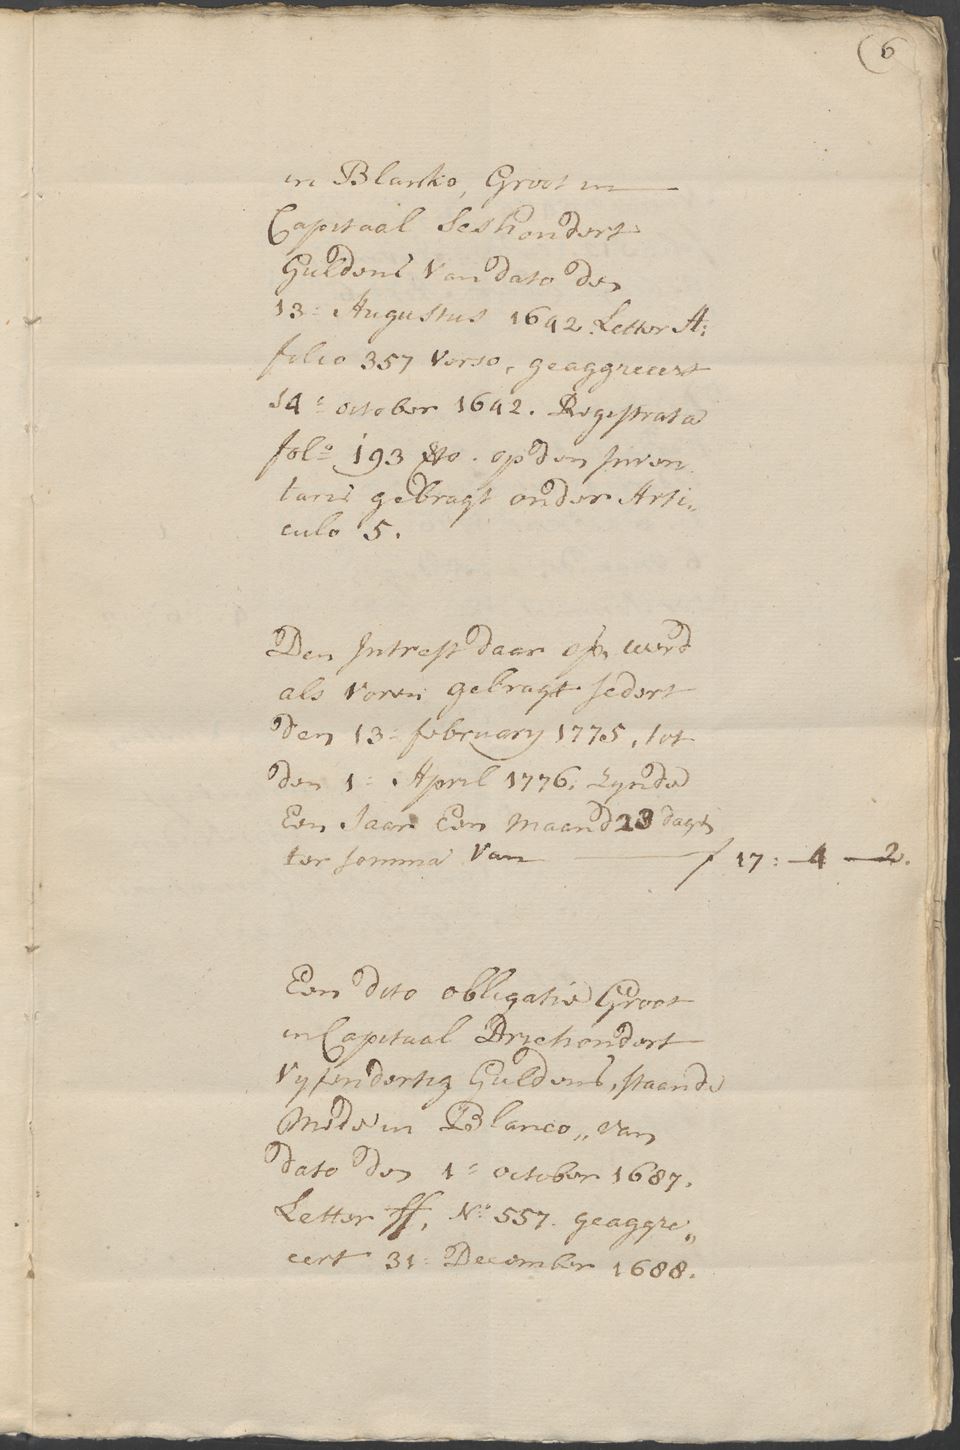 6
in Blanko, Groot in
Capitaal Seshondert
Guldens Van dato den
13: Augustus 1692 Letter A:
folio 357 Verso, geaggreeert
14: october 1692. Registrata
folo 193 Vo. op den Inven
taris gebragt onder Arti„
culo 5.
Den Intrest daar op, werd
als voren gebragt sedert
den 13: february 1775, tot
den 1: April 1776; Zynde
Een Jaar Een Maand 23 dagen
ter somma van f 17:-4-2.
Een dito obligatie Groot
in Capitaal Driehondert
Vyfendertig Guldens, staande
Mede in Blanco„ van
dato den 1: october 1687.
Letter ff, No 557. geaggre„
eert 31: December 1688.